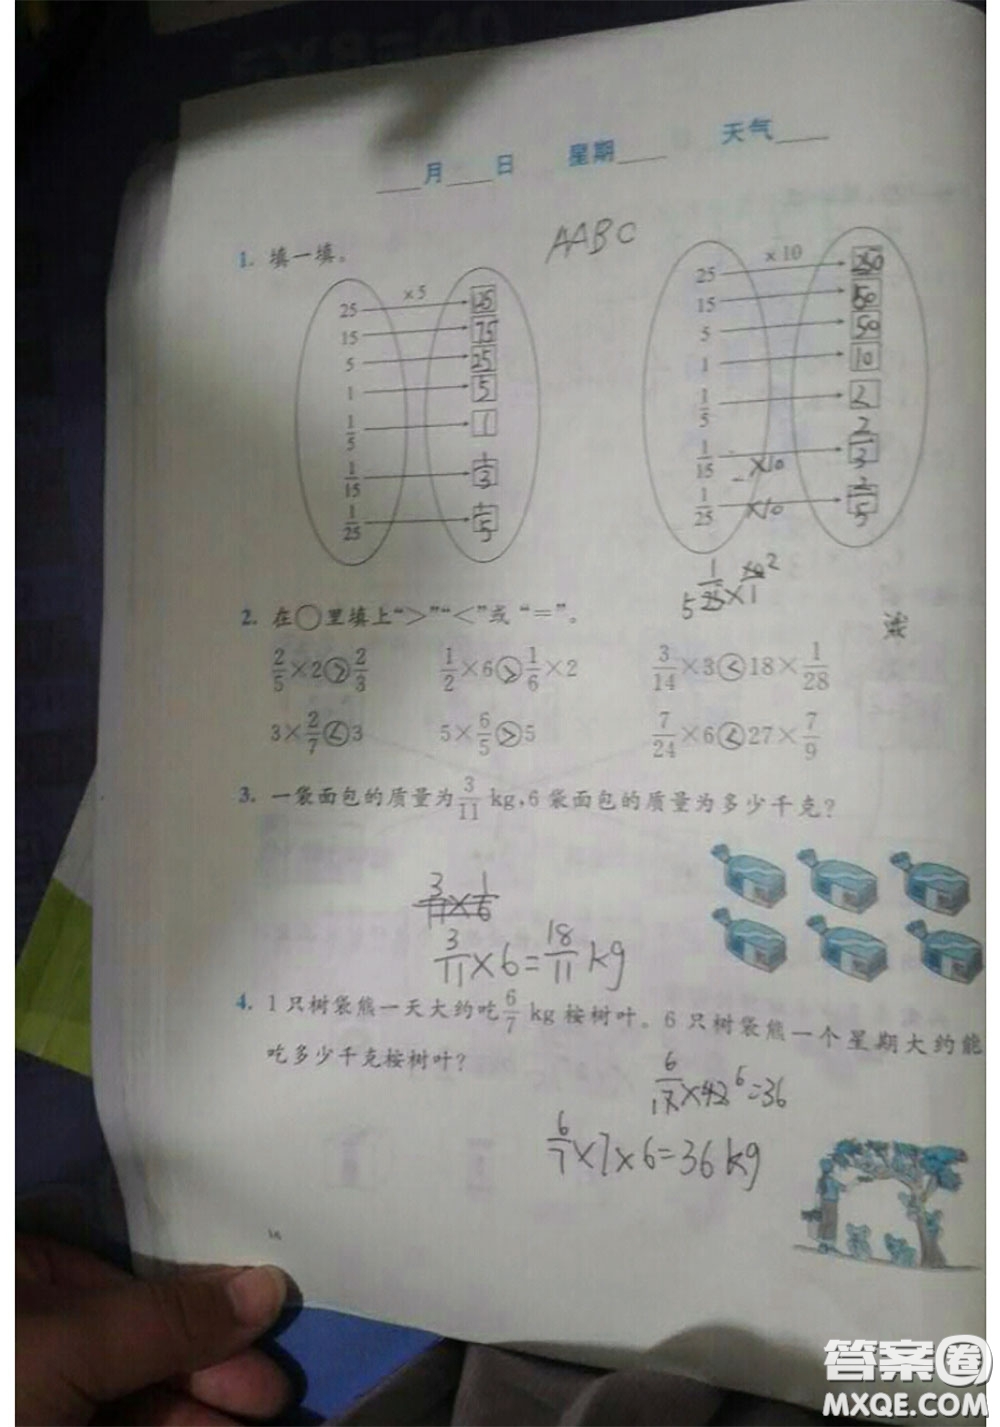 ____月____日 星期____ 天气____
AABC
1. 填一填。
×5
25 → 125
15 → 75
5 → 25
1 → 5
1/5 → 1
1/15 → 1/3
1/25 → 1/5
×10
25 → 250
15 → 150
5 → 50
1 → 10
1/5 → 2
1/15 → 2/3 ×10
1/25 → 2/5 ×10
5 1/25 × 10/1 2
2. 在○里填上“>”“<”或“=”。
2/5×2>2/3 1/2×6>1/6×2 3/14×3<18×1/28
3×2/7<3 5×6/5>5 7/24×6<27×7/9
3. 一袋面包的质量为3/11 kg,6袋面包的质量为多少千克?
3/11×1/6
3/11×6=18/11 kg
4. 1只树袋熊一天大约吃6/7 kg桉树叶。6只树袋熊一个星期大约能
吃多少千克桉树叶?
6/17×42 6=36
6/7×7×6=36kg
16
答案圈
MXQE.COM